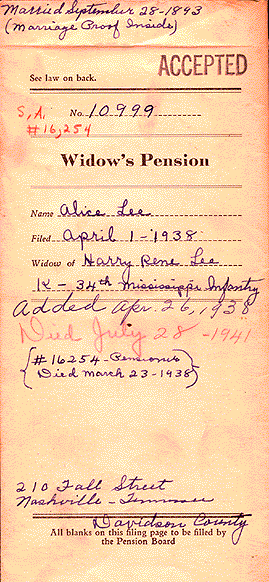 Married September 28-1893
(Marriage Proof Inside)
ACCEPTED
See law on back.
S.A. No. 10999
#16,254
Widow's Pension
Name Alice Lee
Filed April 1-1938
Widow of Harry Rene Lee
K - 34th Mississippi Infantry
Added Apr. 26, 1938
Died July 28-1941
(#16254-Pensioner
Died March 23-1938)
210 Fall Street
Nashville-
Davidson County
All blanks on this filing page to be filled by
the Pension Board